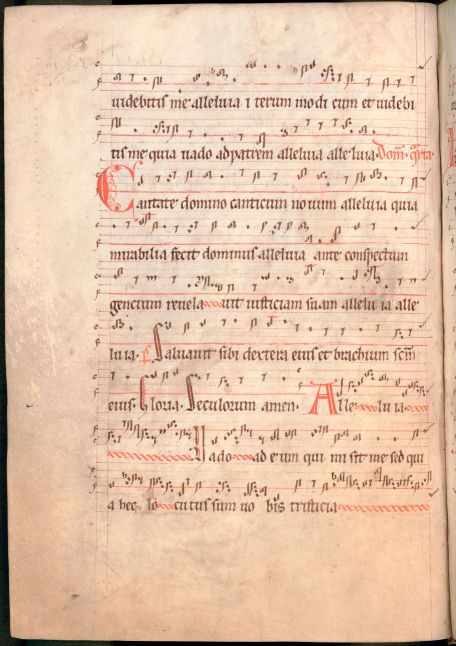 uidebitis me alleluia i terum modi cum et uidebi
tis me quia uado ad patrem alleluia alle luia. Dom̄. q̄rta.
Cantate domino canticum nouum alleluia quia
mirabilia fecit dominus alleluia ante conspectum
gencium reuela uit iusticiam suam allelu ia alle
luia. Saluauit sibi dextera eius et brachium scm̄
eius. Gloria. Seculorum amen. Alle lu ia
Uado ad e um qui mi sit me sed qui
a hec lo cutus sum uo bis tristicia